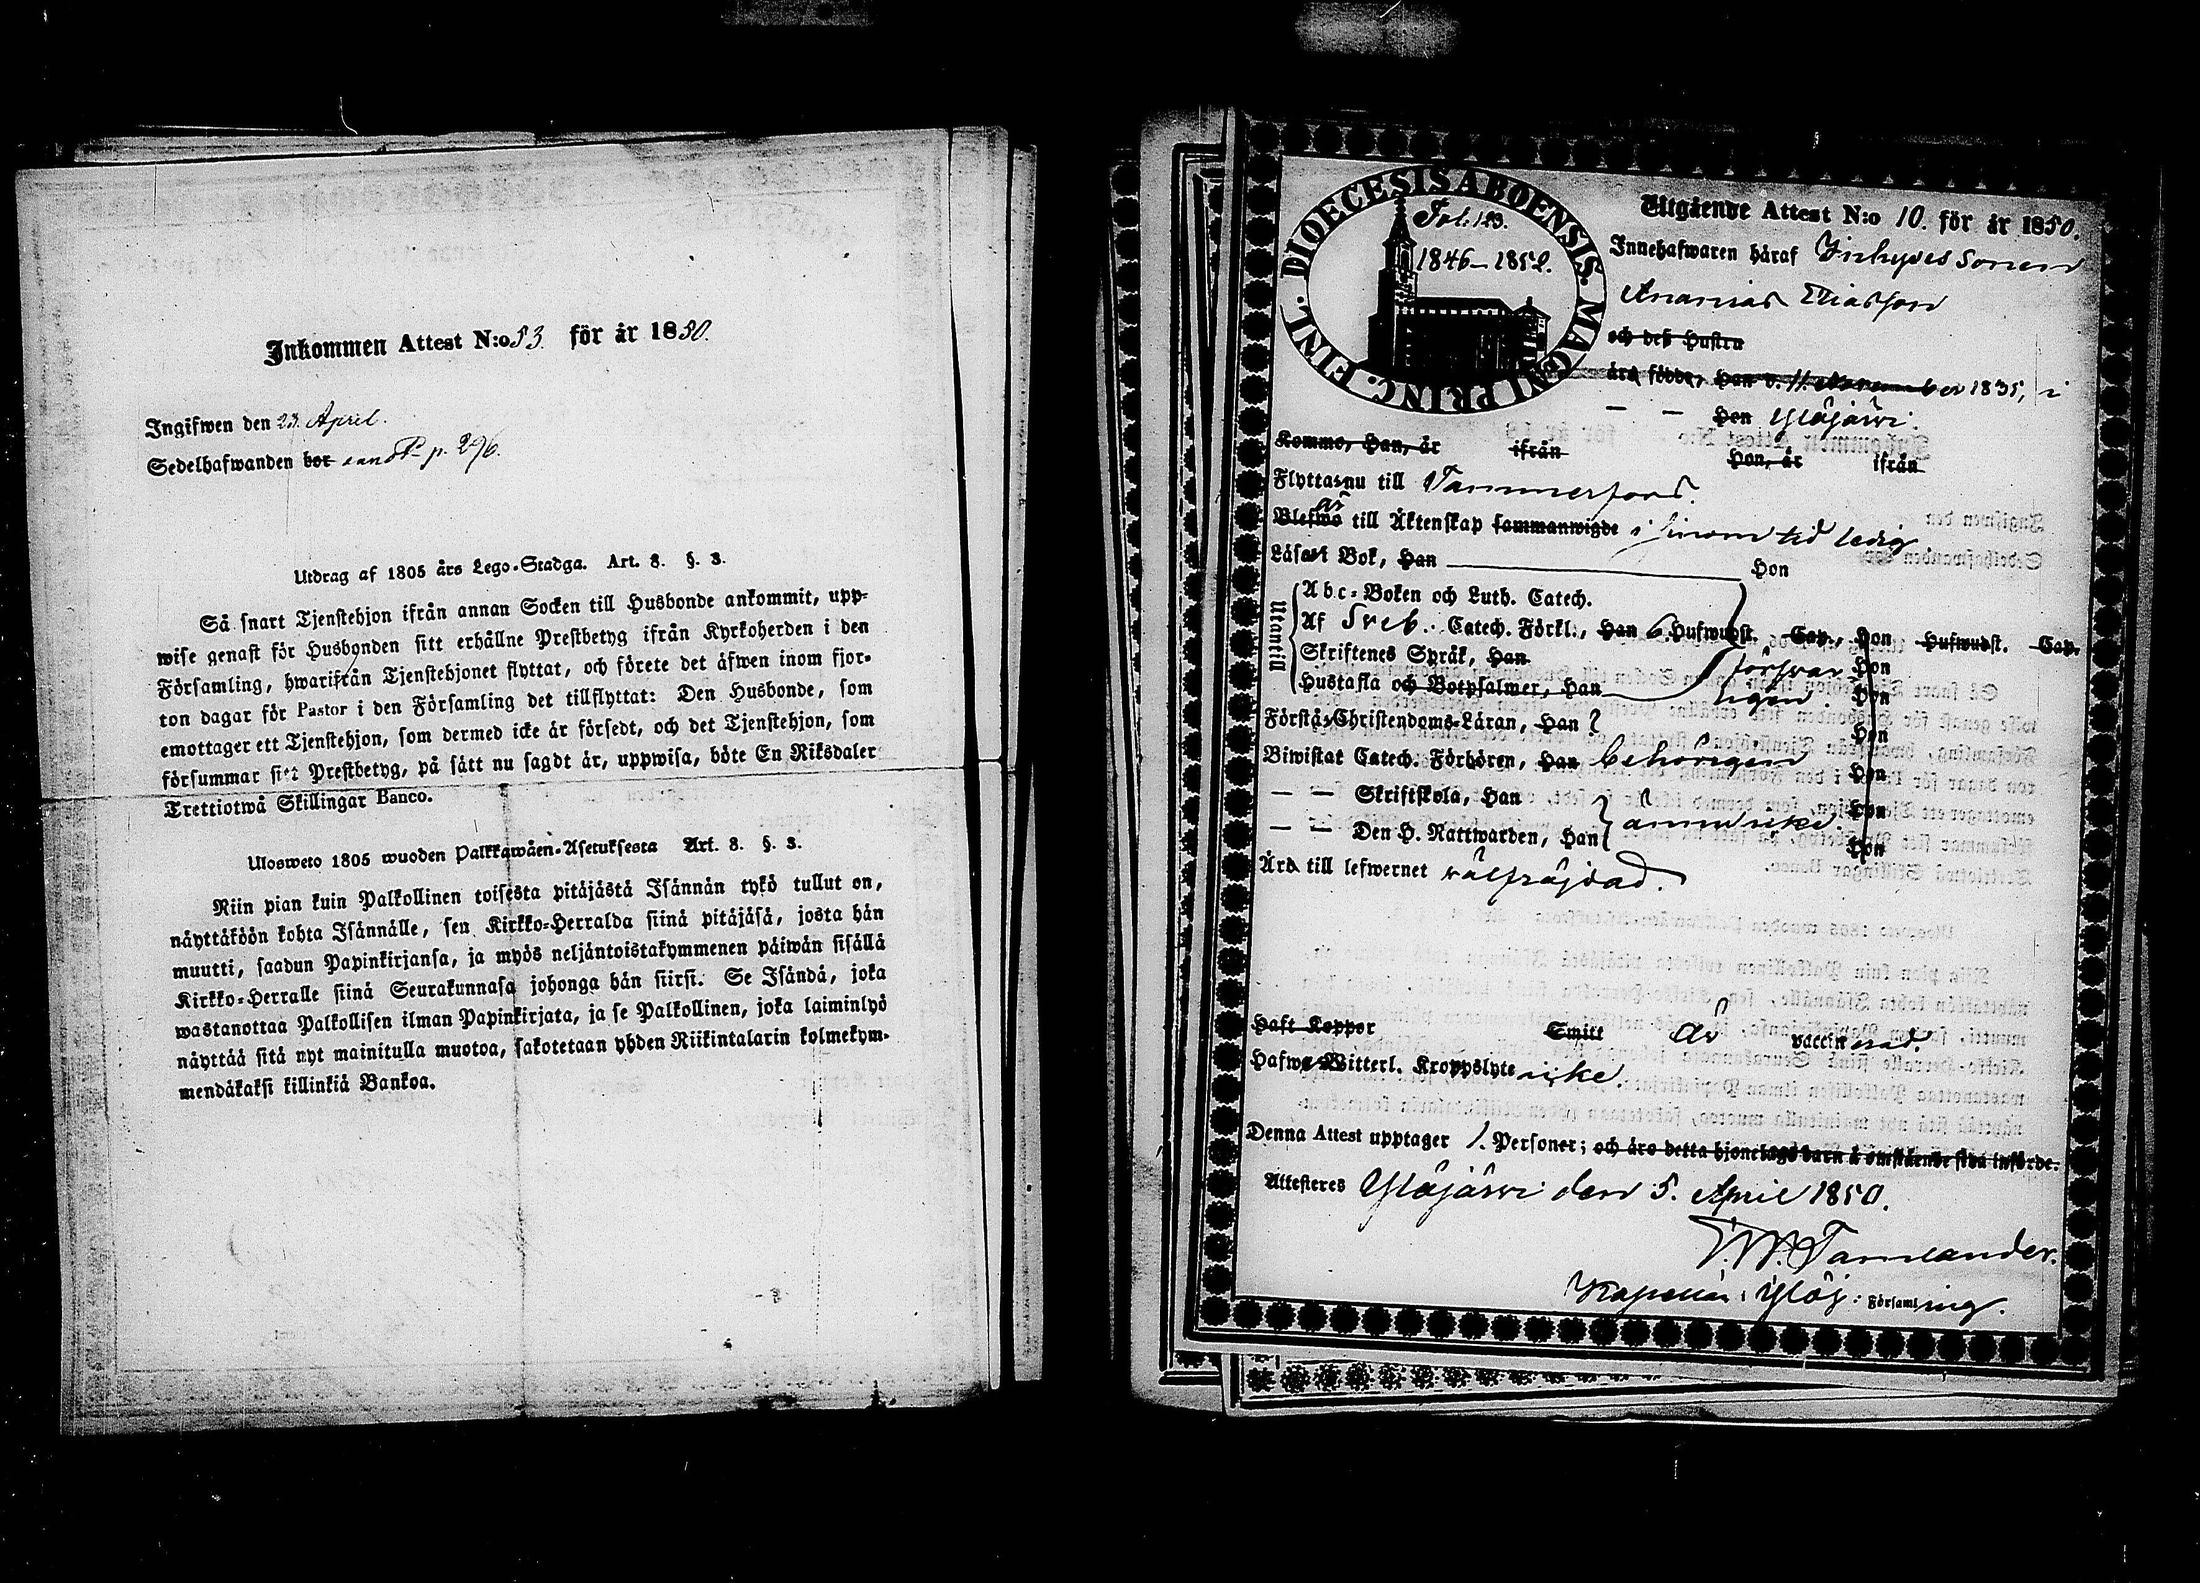 Inkommen Attest N:o 53. för år 1850.
Ingifwen den 23. April.
Sedelhafwanden bor p. 296.
Utdrag af 1805 års Lego-Stadga. Art. 8. §. 3.
Så snart Tjenstehjon ifrån annan Socken till Husbonde ankommit, upp-
wise genast för Husbonden sitt erhållne Prestbetyg ifrån Kyrkoherden i den
Församling, hwarifrån Tjenstehjonet flyttat, och förete det äfwen inom fjor-
ton dagar för Pastor i den Församling det tillflyttat: Den Husbonde, som
emottager ett Tjenstehjon, som dermed icke är försedt, och det Tjenstehjon, som
försummar sitt Prestbetyg, på sätt nu sagdt är, uppwisa, böte En Riksdaler
Trettiotwå Skillingar Banco.
Ulosweto 1805 wuoden Palkkawäen-Asetuksesta Art. 8. §. 3.
Niin pian kuin Palkollinen toisesta pitäjästä Isännän tykö tullut on,
näyttäköön kohta Isännälle, sen Kirkko-Herralda siinä pitäjäsä, josta hän
muutti, saadun Papinkirjansa, ja myös neljäntoistakymmenen päiwän sisällä
Kirkko-Herralle siinä Seurakunnasa johonga hän siirsi. Se Isändä, joka
wastanottaa Palkollisen ilman Papinkirjata, ja se Palkollinen, joka laiminlyö
näyttää sitä nyt mainitulla muotoa, sakotetaan yhden Riikintalarin kolmekym-
mendäkaksi killinkiä Bankoa.
DIOECESIS ABOENSIS. MAGNI PRINC. FINL.
Fol: 123.
1846-1852.
Utgående Attest N:o 10. för år 1850.
Innehafwaren häraf Inhyses sonen
Ananias Eliasson
och dess Hustru
äro födde, Han d. 11 November 1835, i
— — Hon Ylöjärwi.
Kommo, Han, år ifrån Hon, år ifrån
Flyttas nu till Tammerfors.
Blefwo är till Äktenskap sammanwigde i sinom tid ledig
Läsa i Bok, Han Hon
Utantill
Abc-Boken och Luth. Catech.
Af Sveb. Catech. Förkl., Han 6 Hufwudst. Cap., Hon Hufwudst. Cap.
Skriftenes Språk, Han försvar- Hon
Hustafla och Botpsalmer, Han ligen. Hon
Förstå Christendoms-Läran, Han Hon
Biwistat Catech. Förhören, Han behörigen Hon
— — Skriftskola, Han Hon
— — Den H. Nattwarden, Han ännu icke. Hon
Äro till lefwernet välfräjdad.
Haft Koppor Smitt Är vaccinerad.
Hafwa Witterl. Kroppslyte icke.
Denna Attest upptager 1. Personer; och äro detta hjonelags barn å omstående sida införde.
Attesteres Ylöjärwi den 5. April 1850.
Tamlander.
Kapellan i Ylöj: Församling.